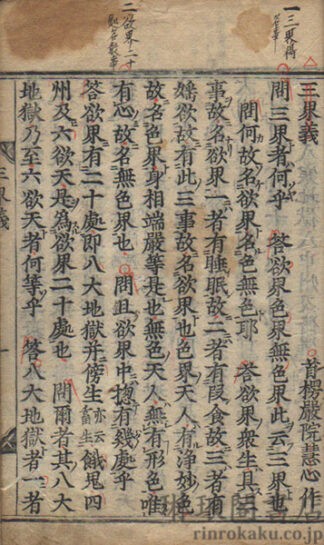 一三界得
名等事
二欲界二十
処名数事
三界義
首楞嚴院慧心作
問三界者何乎 答欲界色界無色界此云三界也
問何故名欲界名色無色耶 答欲界衆生具三
事故名欲界一者有睡眠故二者有段食故三者有
婬欲故有此三事故名欲界也色界天人有浄妙色
故名色界身相端嚴等是也無色天人無有形色唯
有心故名無色界也 問且欲界中揔有幾處乎
答欲界有二十處即八大地獄并傍生亦云畜生餓鬼四
州及六欲天是為欲界二十處也 問爾者其八大
地獄乃至六欲天者何等乎 答八大地獄者一者
三界義
一
rinrokaku.co.jp